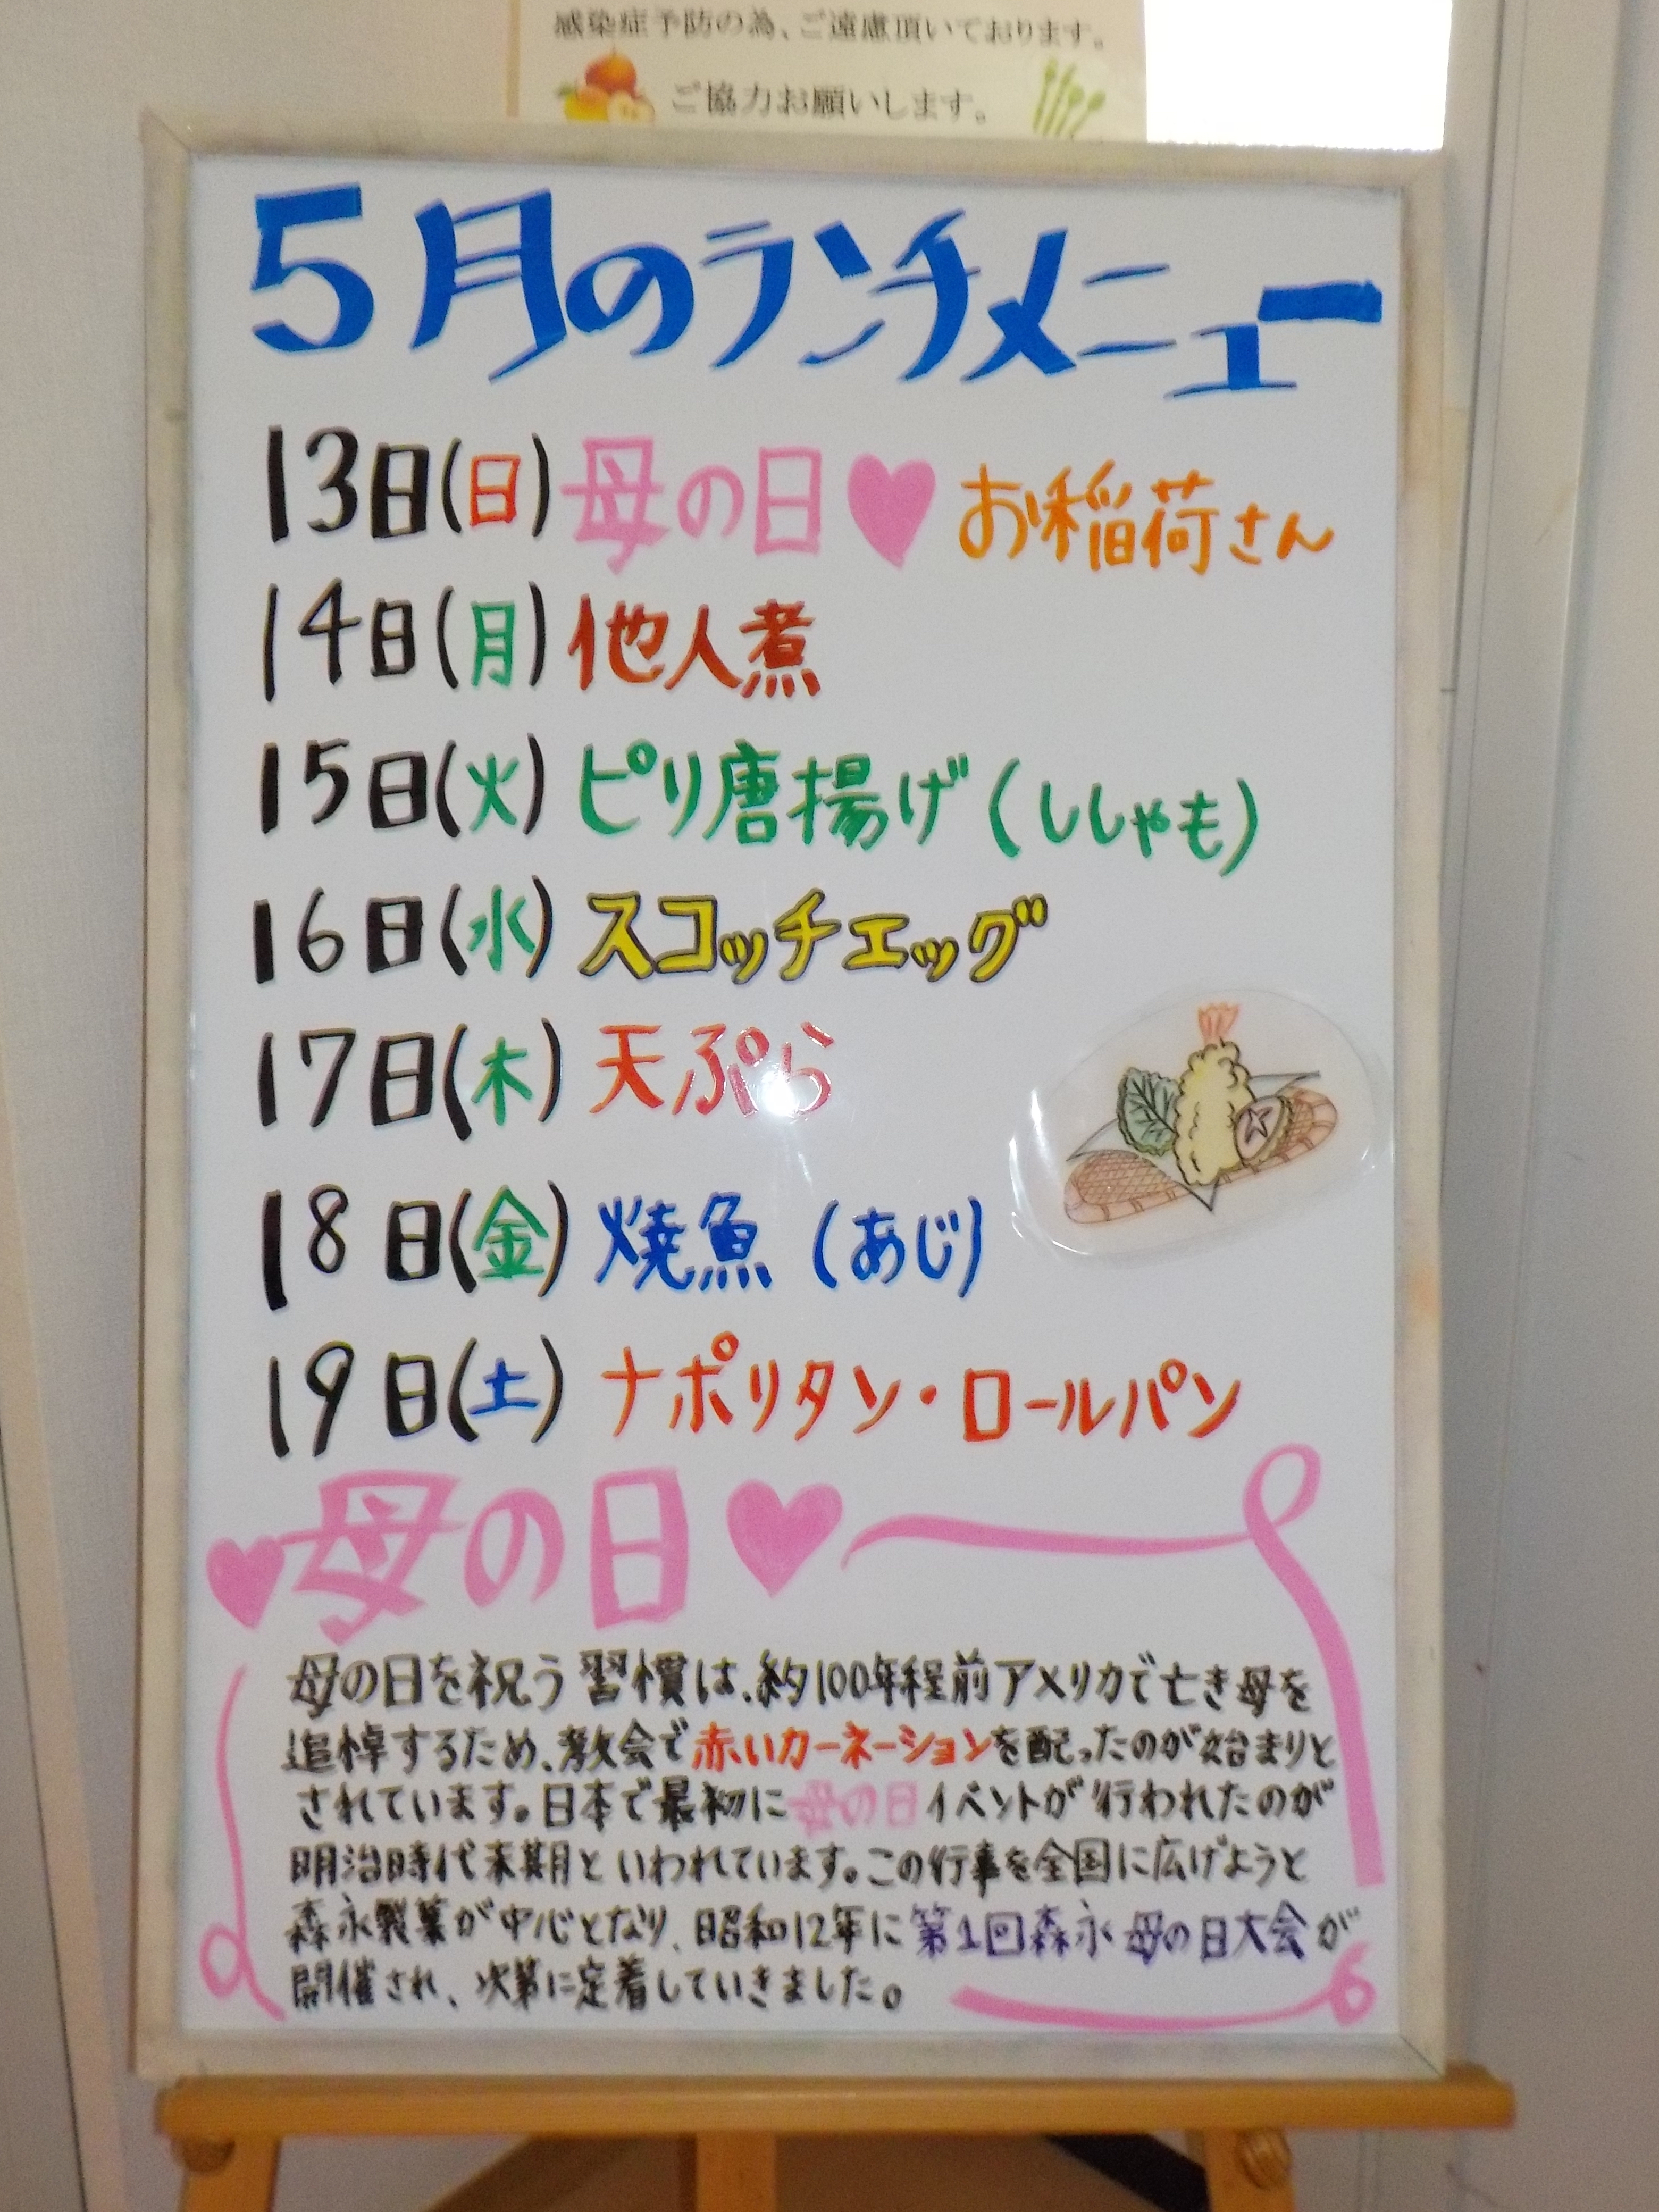 感染症予防の為、ご遠慮頂いております。
ご協力お願いします。
5月のランチメニュー
13日(日)母の日♥お稲荷さん
14日(月)他人煮
15日(火)ピリ唐揚げ(ししゃも)
16日(水)スコッチエッグ
17日(木)天ぷら
18日(金)焼魚(あじ)
19日(土)ナポリタン・ロールパン
♥母の日♥
母の日を祝う習慣は、約100年程前アメリカで亡き母を
追悼するため、教会で赤いカーネーションを配ったのが始まりと
されています。日本で最初に母の日イベントが行われたのが
明治時代末期といわれています。この行事を全国に広げようと
森永製菓が中心となり、昭和12年に第1回森永母の日大会が
開催され、次第に定着していきました。